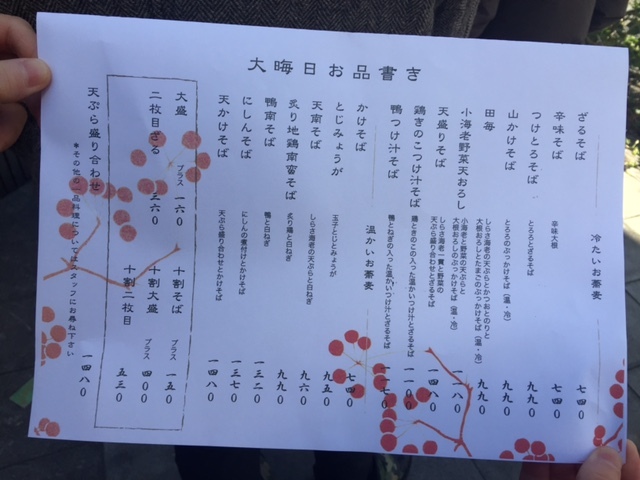 大晦日お品書き
冷たいお蕎麦
ざるそば 七四〇
辛味そば 辛味大根 七四〇
つけとろそば とろろとざるそば 九九〇
山かけそば とろろのぶっかけそば（温・冷） 九九〇
田毎 しらさ海老の天ぷらとかつおとのりと
大根おろしとたまごのぶっかけそば（温・冷） 九九〇
小海老野菜天おろし 小海老と野菜の天ぷらと
大根おろしのぶっかけそば（温・冷） 一一八〇
天盛りそば しらさ海老一貫と野菜の
天ぷら盛り合わせとざるそば 一四八〇
鶏きのこつけ汁そば 鶏ときのこの入った温かいつけ汁とざるそば 一一〇〇
鴨つけ汁そば 鴨とねぎの入った温かいつけ汁とざるそば 一一七〇
温かいお蕎麦
かけそば 七四〇
とじみょうが 玉子とじとみょうが 九五〇
天南そば しらさ海老の天ぷらと白ねぎ 九六〇
炙り地鶏南蛮そば 炙り鶏と白ねぎ 九九〇
鴨南そば 鴨と白ねぎ 一三二〇
にしんそば にしんの煮付けとかけそば 一三七〇
天かけそば 天ぷら盛り合わせとかけそば 一四八〇
大盛 プラス 一六〇
二枚目ざる 三六〇
十割そば プラス 一五〇
十割大盛 プラス 四〇〇
十割二枚目 五三〇
天ぷら盛り合わせ 一四八〇
＊その他の一品料理についてはスタッフにお尋ね下さい